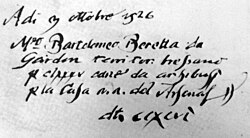 Adi 3 ottobre 1526
Mro. Bartolomeo Beretta da
Gardon territor bressano
p clxxxv cane da arcibusi
p la Casa n.ra del Arsenal
dti ccxcvi